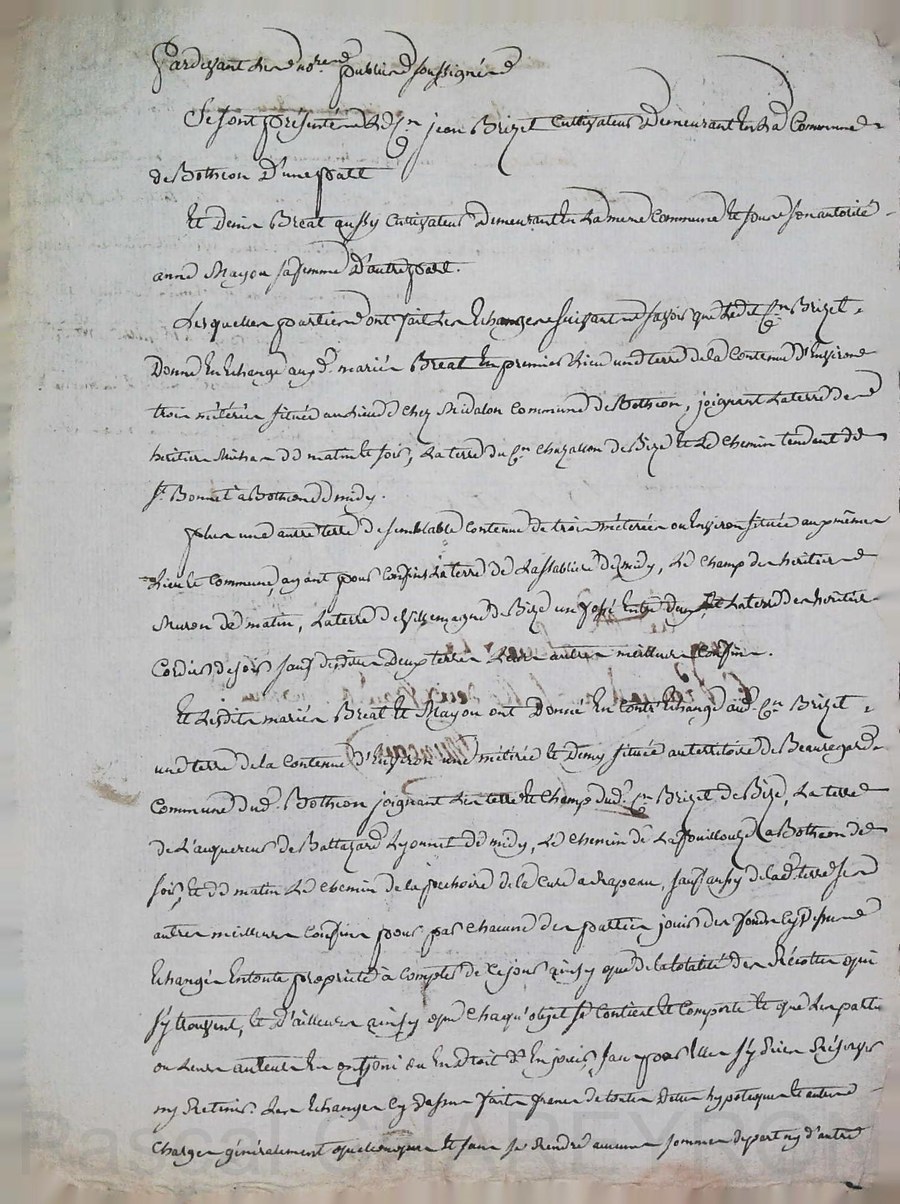 Pardevant les nores publics soussignés
Se sont présentés le Cn jean Brizet Cultivateur demeurant en la Commune
de Botheon D'une part
Et Denis Breat aussy Cultivateur demeurant en la meme Commune et sous son autorité
anne Mayou sa femme D'autre part.
Lesquelles parties ont fait les Echanges suivants savoir que ledit Cn Brizet
Donne En Echange auxd. mariés Breat En premier lieu une terre de la Contenue D'Environ
trois méterées située au lieu de chez Midalon Commune de Botheon, joignant la terre des
heritiers de matin et soir, la terre du Cn Chazallon de Bize et le chemin tendant de
St. Bonnet a Botheon de midy.
plus une autre terre de semblable Contenue de trois méterées ou Environ située aux mêmes
Lieu et Commune, ayant pour Confins la terre de de midy, le champ des heritiers
Muron de matin, la terre de Villemagne de Bize un fossé Entre deux, et la terre des heritiers
Cordier de soir sauf desdites Deux terres leurs autres meilleurs Confins.
Et lesdits mariés Breat et Mayou ont Donné En Contr'Echange aud. Cn Brizet
une terre de la Contenue D'Environ une métérée et Demy située au territoire de Beauregard
Commune dud. Botheon joignant les terre et Champ dud. Cn Brizet de Bize, la terre
de L'aquereur de Baltazard Lyonnet de midy, le chemin de Lafouillouze a Botheon de
soir, et de matin le chemin de la de la Cure a Rapeau, sauf aussy de lad. terre ses
autres meilleurs Confins pour par chacune des parties jouir des fonds Cy Dessus
Echangés En toute propriété à Compter de ce jour ainsy que de la totalité des Récoltes qui
s'y trouvent, et D'ailleurs ainsy que chaqu'objet se Contient et Comporte et que les parties
ou leurs auteurs En ont joui ou Eu droit D'En jouir, sans par Elles s'y Rien Réserver
ny Retenir. Les Echanges Cy Dessus faits francs de toutes Dettes hypoteques et autres
Charges généralement quelconques et sans se Rendre aucunes sommes de part ny d'autre